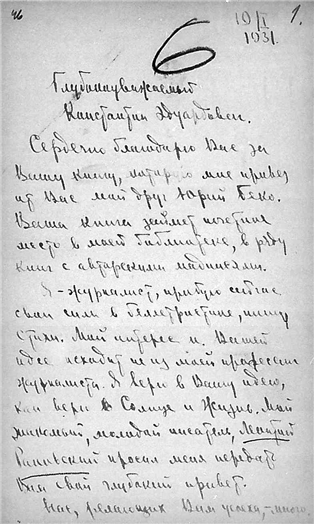 46 19/I 1.
6 1931.
Глубокоуважаемый
Константин Эдуардович.
Сердечно благодарю Вас за
Вашу книгу, которую мне привез
от Вас мой друг Юрий
Ваша книга займет почетное
место в моей библиотеке, в ряду
книг с авторскими надписями.
Я – журналист, пробую сейчас
свои силы в беллетристике, пишу
стихи. Мой интерес к Вашей
идее исходит не из моей профессии
журналиста. Я верю в Вашу идею,
как верю в Солнце и Жизнь. Мой
знакомый, молодой писатель,
просил меня передать
Вам свой глубокий привет.
Нас, желающих Вам успеха, – много.